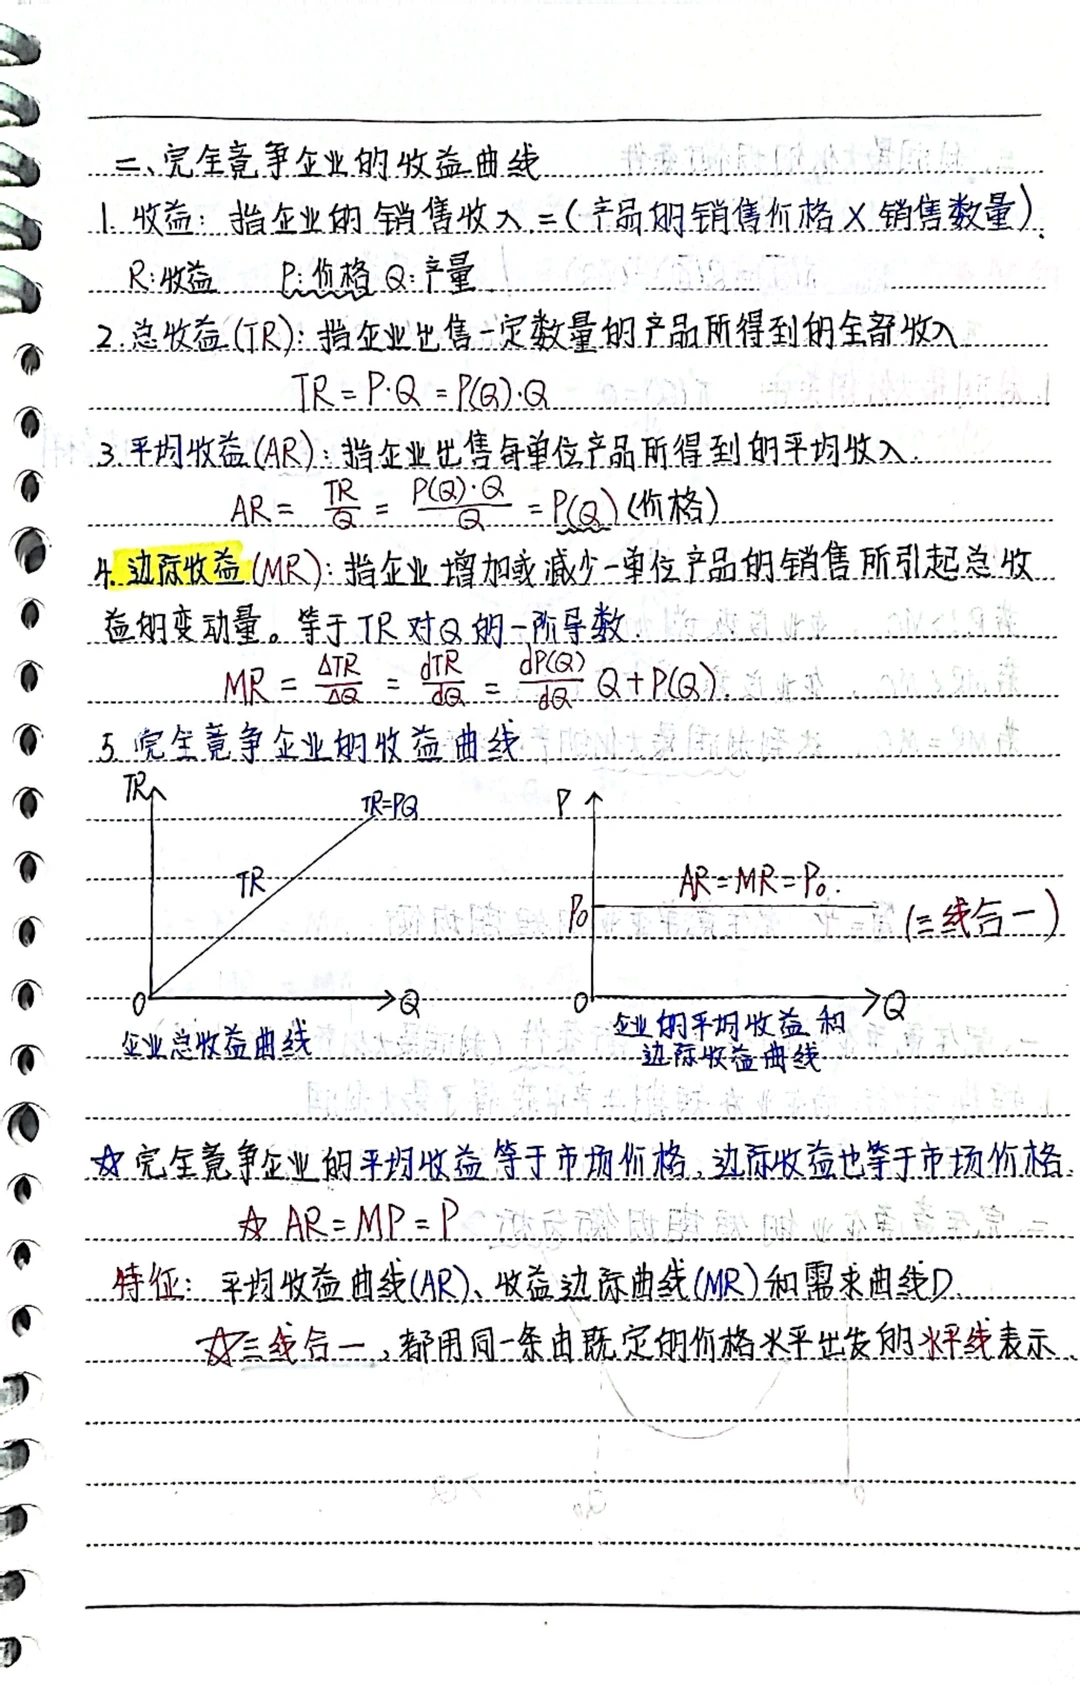 二、完全竞争企业的收益曲线
1. 收益：指企业的销售收入=(产品的销售价格×销售数量).
R:收益 P:价格 Q:产量
2.总收益(TR)：指企业出售一定数量的产品所得到的全部收入
TR=P·Q=P(Q)·Q
3.平均收益(AR)：指企业出售每单位产品所得到的平均收入.
AR= TR/Q = P(Q)·Q/Q =P(Q)(价格)
4.边际收益(MR)：指企业增加或减少一单位产品的销售所引起总收
益的变动量。等于TR对Q的一阶导数.
MR= ΔTR/ΔQ = dTR/dQ = dP(Q)/dQ Q+P(Q).
5.完全竞争企业的收益曲线
TR TR=PQ P
TR AR=MR=P₀.
P₀ (三线合一)
O Q O Q
企业总收益曲线 企业的平均收益和
边际收益曲线
☆完全竞争企业的平均收益等于市场价格,边际收益也等于市场价格.
☆ AR=MP=P
特征：平均收益曲线(AR)、收益边际曲线(MR)和需求曲线D.
☆三线合一,都用同一条由既定的价格水平出发的水平线表示.